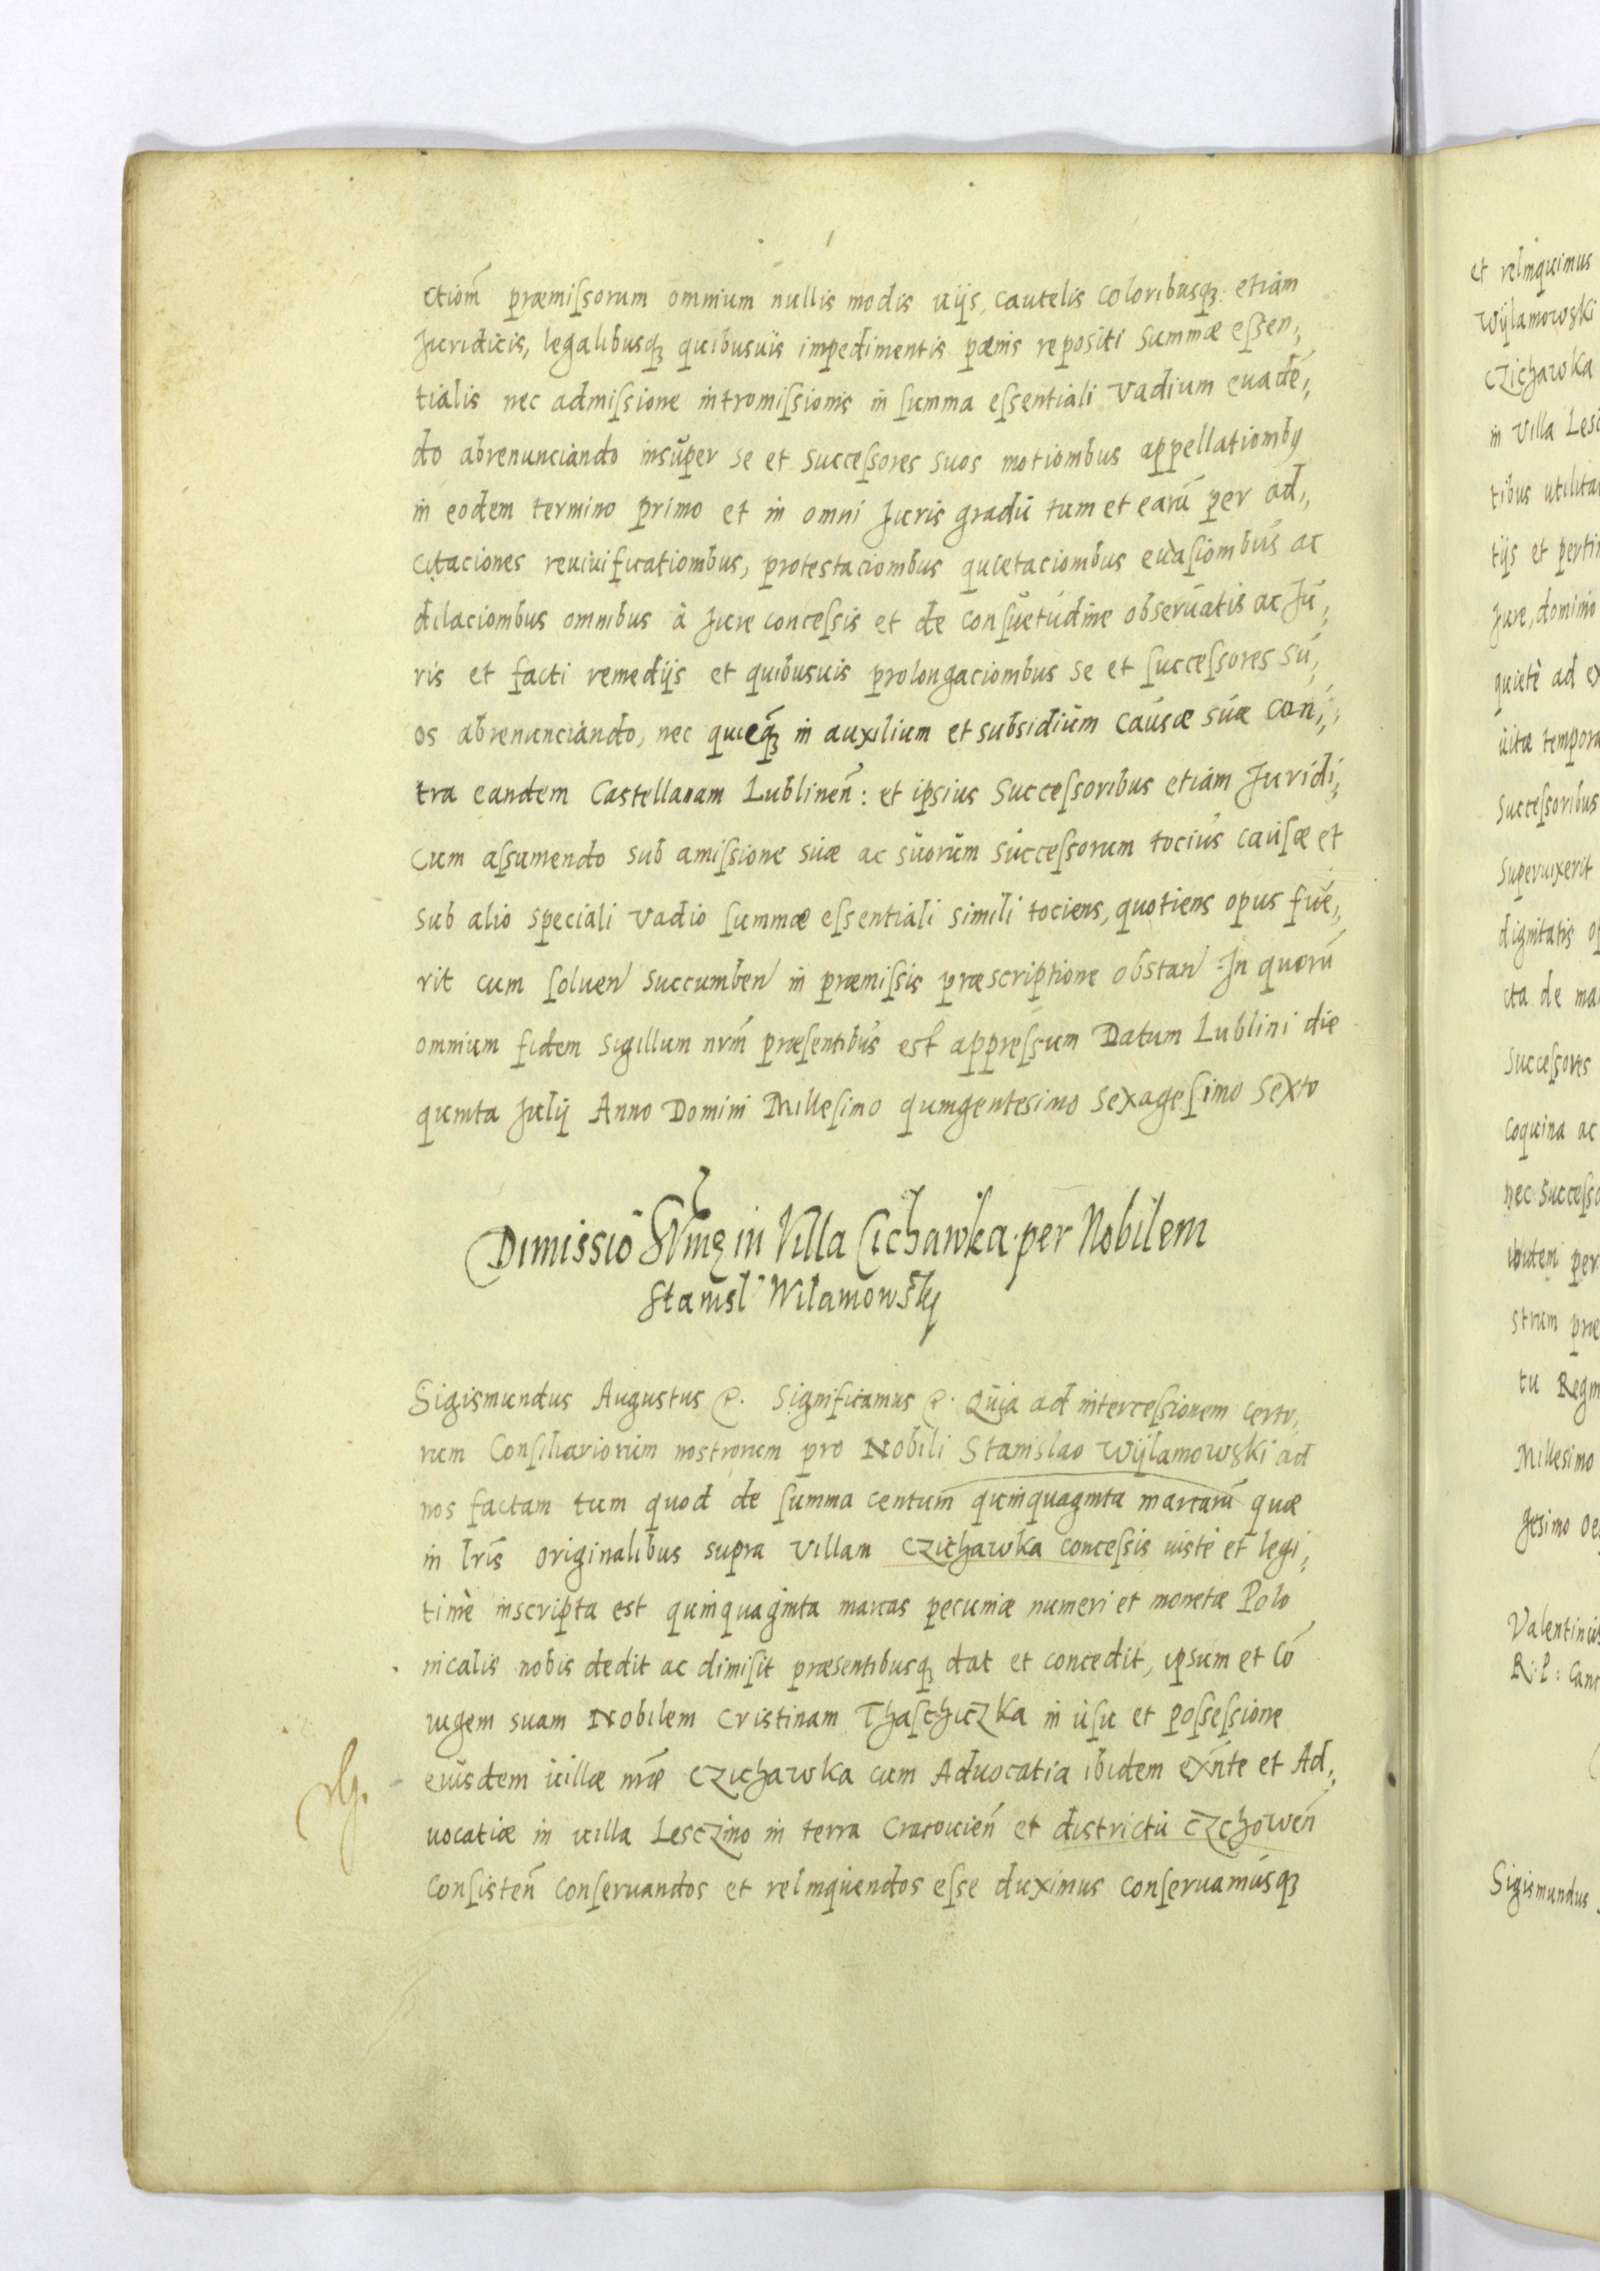 ctiom̃ præmiſsorum omnium nullis modis uijs, cautelis coloribusq₃ etiam
Juridicis, legalibusq₃ quibusuis impedimentis pænis repositi Summæ eſsen,
tialis nec admiſsione intromiſsionis in ſumma eſsentiali Vadium euadẽ,
do abrenunciando insuper se et Succeſsores Suos motionibus appellationibꝫ
in eodem termino primo et in omni Juris gradu tum et earũ per ad,
citaciones reuiuificationibus, protestacionibus quietacionibus euaſionibus ac
dilacionibus omnibus à Jure conceſsis et de conſuetudine obseruatis ac Ju,
ris et facti remedijs et quibusuis prolongacionibus se et ſucceſsores Su,
os abrenunciando, nec quicq₃ in auxilium et subsidium Causæ Suæ Con,
tra eandem Castellanam Lublinen̄: et ipsius Succeſsoribus etiam Juridi,
cum aſsumendo sub amiſsione suæ ac suorum succeſsorum tocius cauſæ et
sub alio speciali vadio ſummæ eſsentiali simili tociens, quotiens opus fue,
rit cum ſoluen̄ succumben̄ in præmiſsis præscriptione obstan̄ In quorũ
omnium fidem sigillum nrm̃ præſentibus est appreſsum Datum Lublini die
quinta Julij Anno Domini Milleſimo quingentesimo Sexageſimo Sexto
Dimissio in Villa Cichawka per Nobilem
Stanisl̃ Wilamowsky
Sigismundus Augustus &. Significamus &. Quia ad interceſsionem certo,
rum Conſiliariorum nostrorum pro Nobili Stanislao Wijlamowski ad
nos factam tum quod de ſumma centum quinquaginta marcarũ quæ
in lr̃is originalibus supra Villam Czichawka conceſsis iuste et legi,
timè inscripta est quinquaginta marcas pecuniæ numeri et monetæ Polo
nicalis nobis dedit ac dimiſit præsentibusq₃ dat et concedit, ipsum et Cõ
iugem suam Nobilem Cristinam Thaſchiczka in uſu et poſseſsione
eiusdem uillæ nr̃æ Czichawka cum Aduocatia ibidem exn̄te et Ad,
uocatiæ in uilla Lesczino in terra Cracouien̄ et districtu Czchowen̄
Conſisten̄ conſeruandos et relinquendos eſse duximus conſeruamusq₃
et relinquimus
Wijlamowski
Czichawka
in Villa
tibus
tijs et
Jure, domino
quietè ad
uitæ
Succeſsoribus
Superuixerit
dignitatis
cta de
Succeſsores
Coquina ac
nec
ibidem
strum
tu
Millesimo
gesimo
Sigismundus